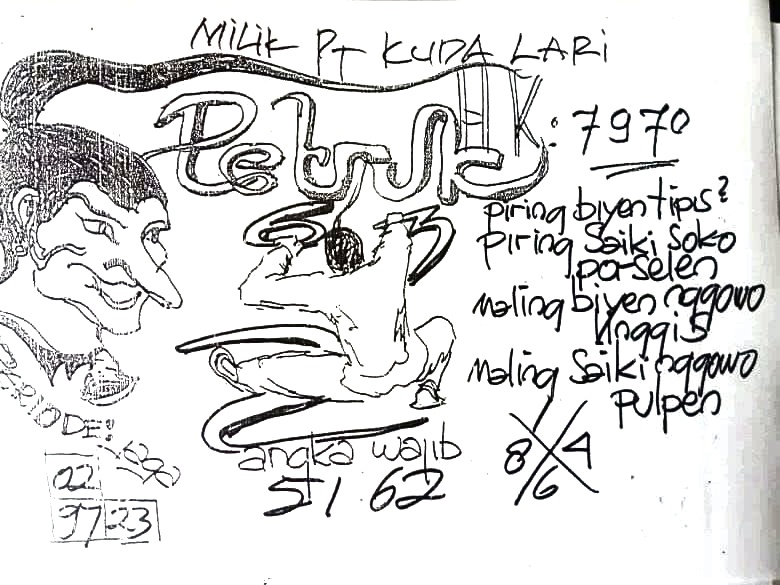 MILIK PT KUDA LARI
Petruk
HK: 7970
piring biyen tipis?
piring Saiki Soko
po-selen
maling biyen nggowo
linggis
maling Saiki nggowo
pulpen
PERIODE:
angka wajib
51 62
8 4
6
02
97 23